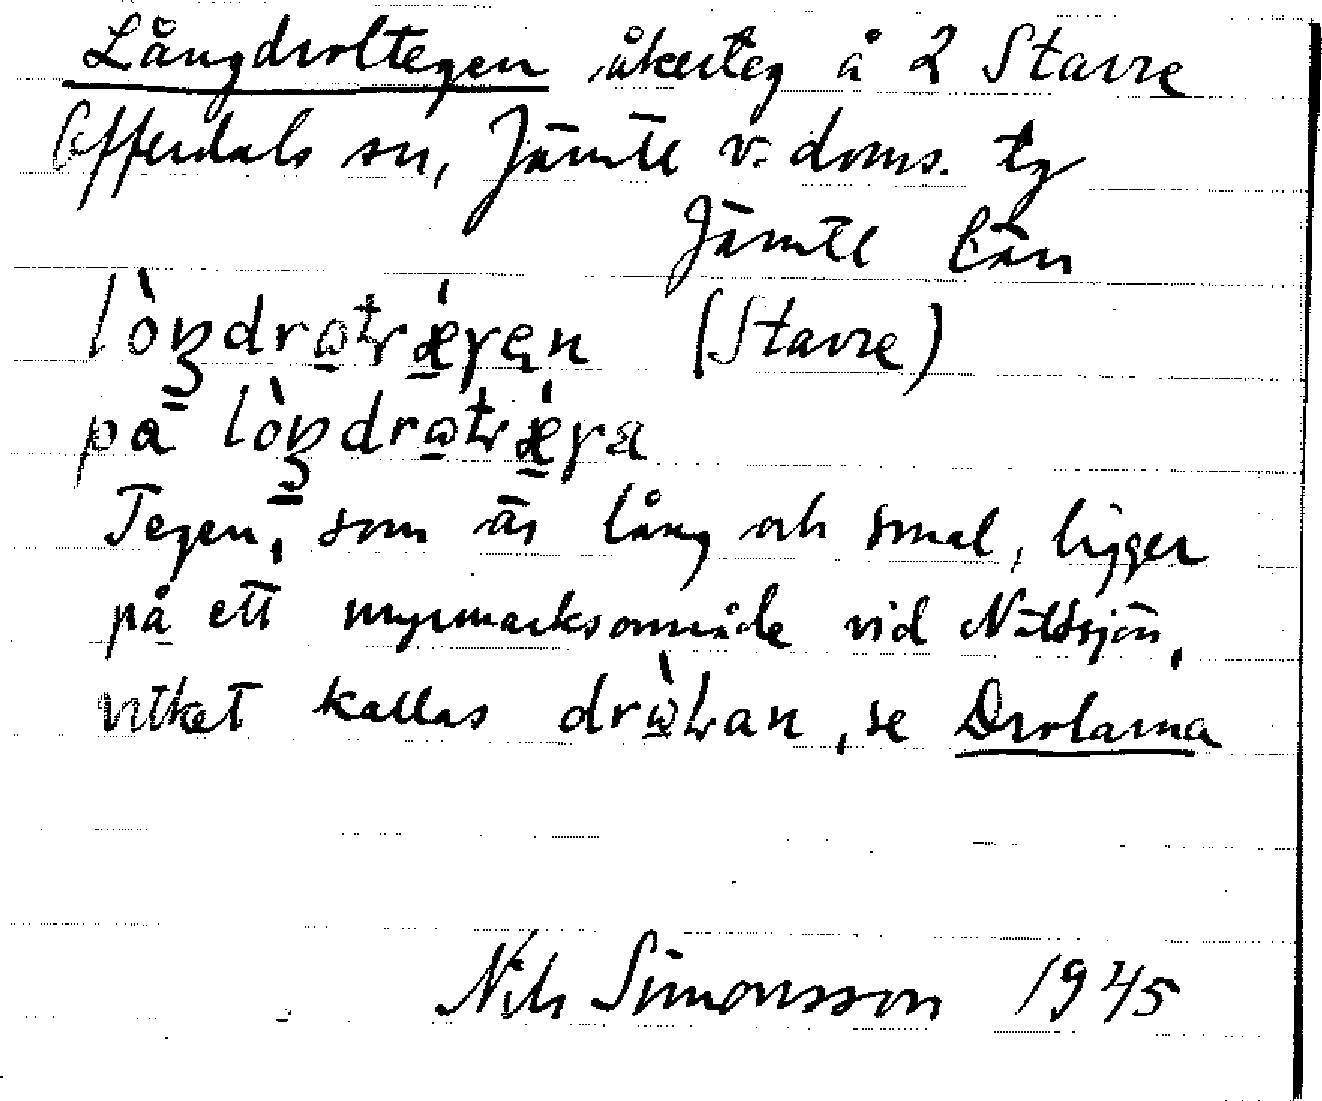 Långdroltegen åkerteg å 2 Stavre
Offerdals sn, Jämtl v. doms. tg
Jämtl Län
(Stavre)
på
Tegen, som är lång och smal, ligger
på ett myrmarksområde vid Nätsjön,
vilket kallas , se Drolarna
Nils Simonsson 1945